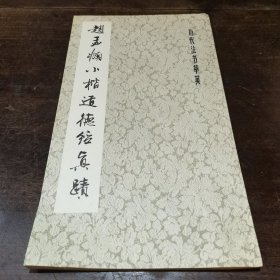 趙孟頫小楷道德經真蹟
歷代法書萃英